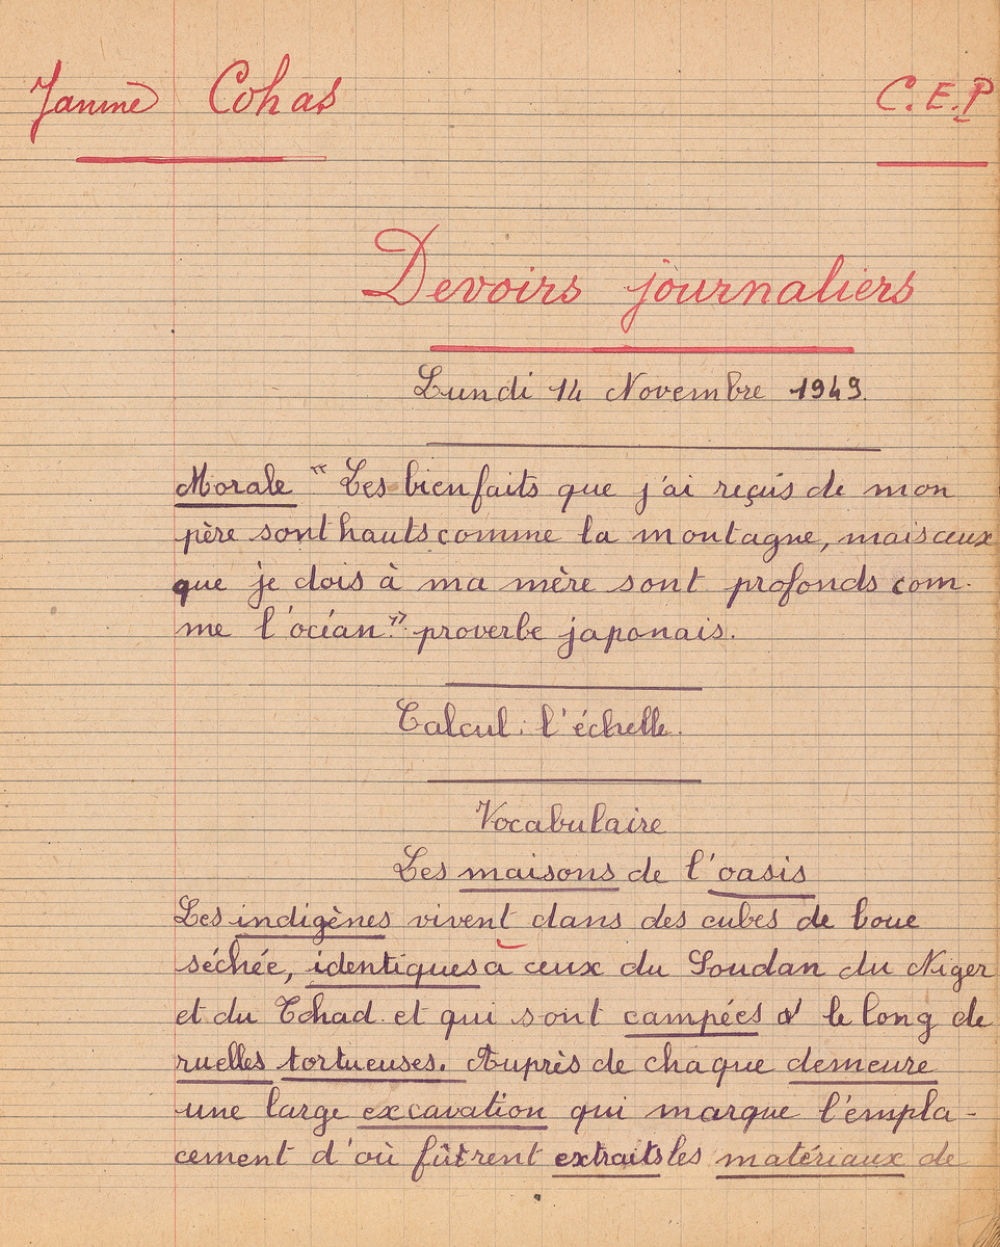 Janine Cohas
C.E.P
Devoirs journaliers
Lundi 14 Novembre 1949.
Morale "Les bienfaits que j'ai reçus de mon
père sont hauts comme la montagne, mais ceux
que je dois à ma mère sont profonds com-
me l'océan." proverbe japonais.
Calcul : l'échelle.
Vocabulaire
Les maisons de l'oasis
Les indigènes vivent dans des cubes de boue
séchée, identiques à ceux du Soudan du Niger
et du Tchad et qui sont campées le long de
ruelles tortueuses. Auprès de chaque demeure
une large excavation qui marque l'empla-
cement d'où fûtrent extraits les matériaux de